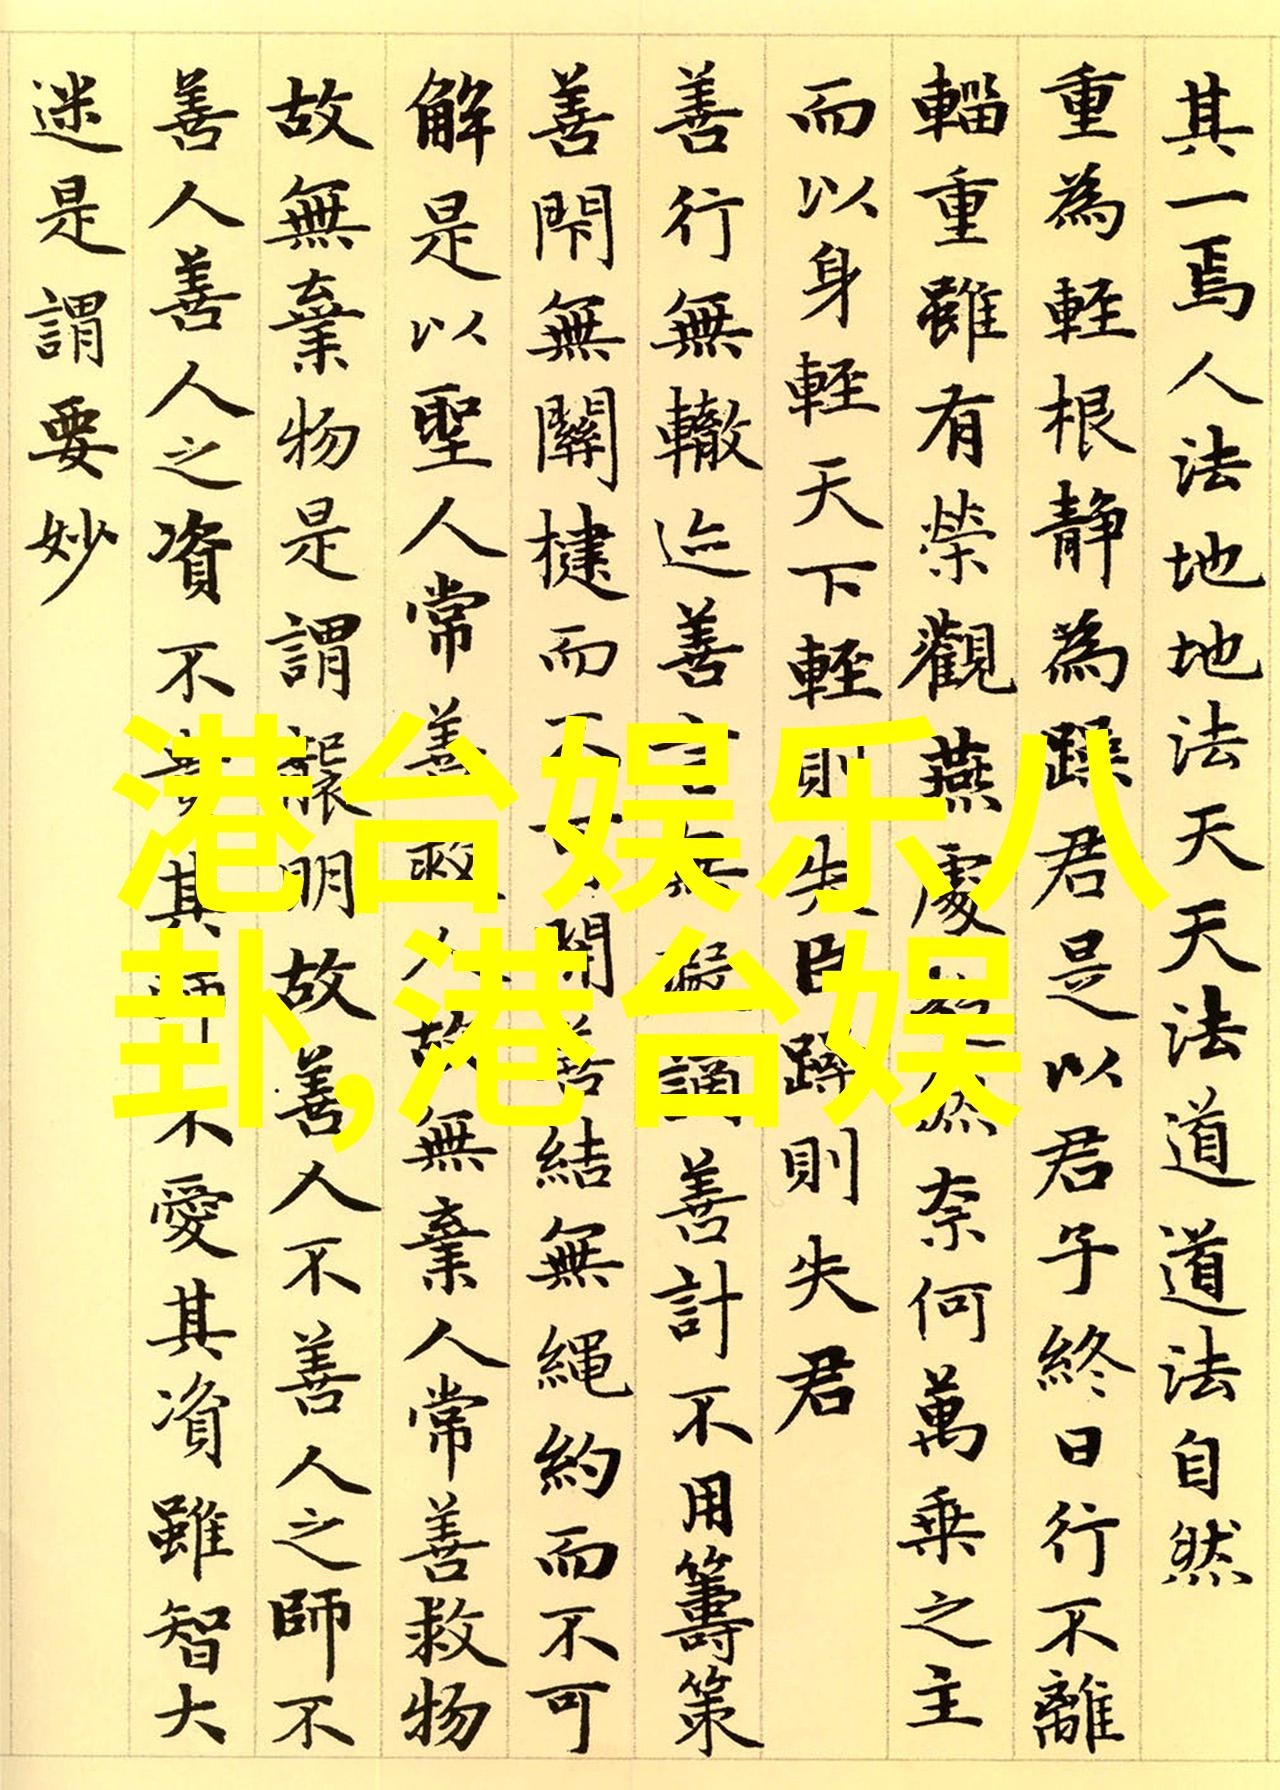 其一焉人法地地法天天法道道法自然
重為輕根静為躁君是以君子終日行不離
輜重雖有榮觀燕處然奈何萬乗之主
而以身輕天下輕則失臣躁則失君
善行無轍迹善言無讁善計不用籌策
善閇無關楗而不可開善結無繩約而不可
解是以聖人常善救人故無棄人常善救物
故無棄物是謂襲明故善人不善人之師不
善人善人之資不其師不愛其資雖智大
迷是謂要妙
港台娱乐八
卦,港台娱